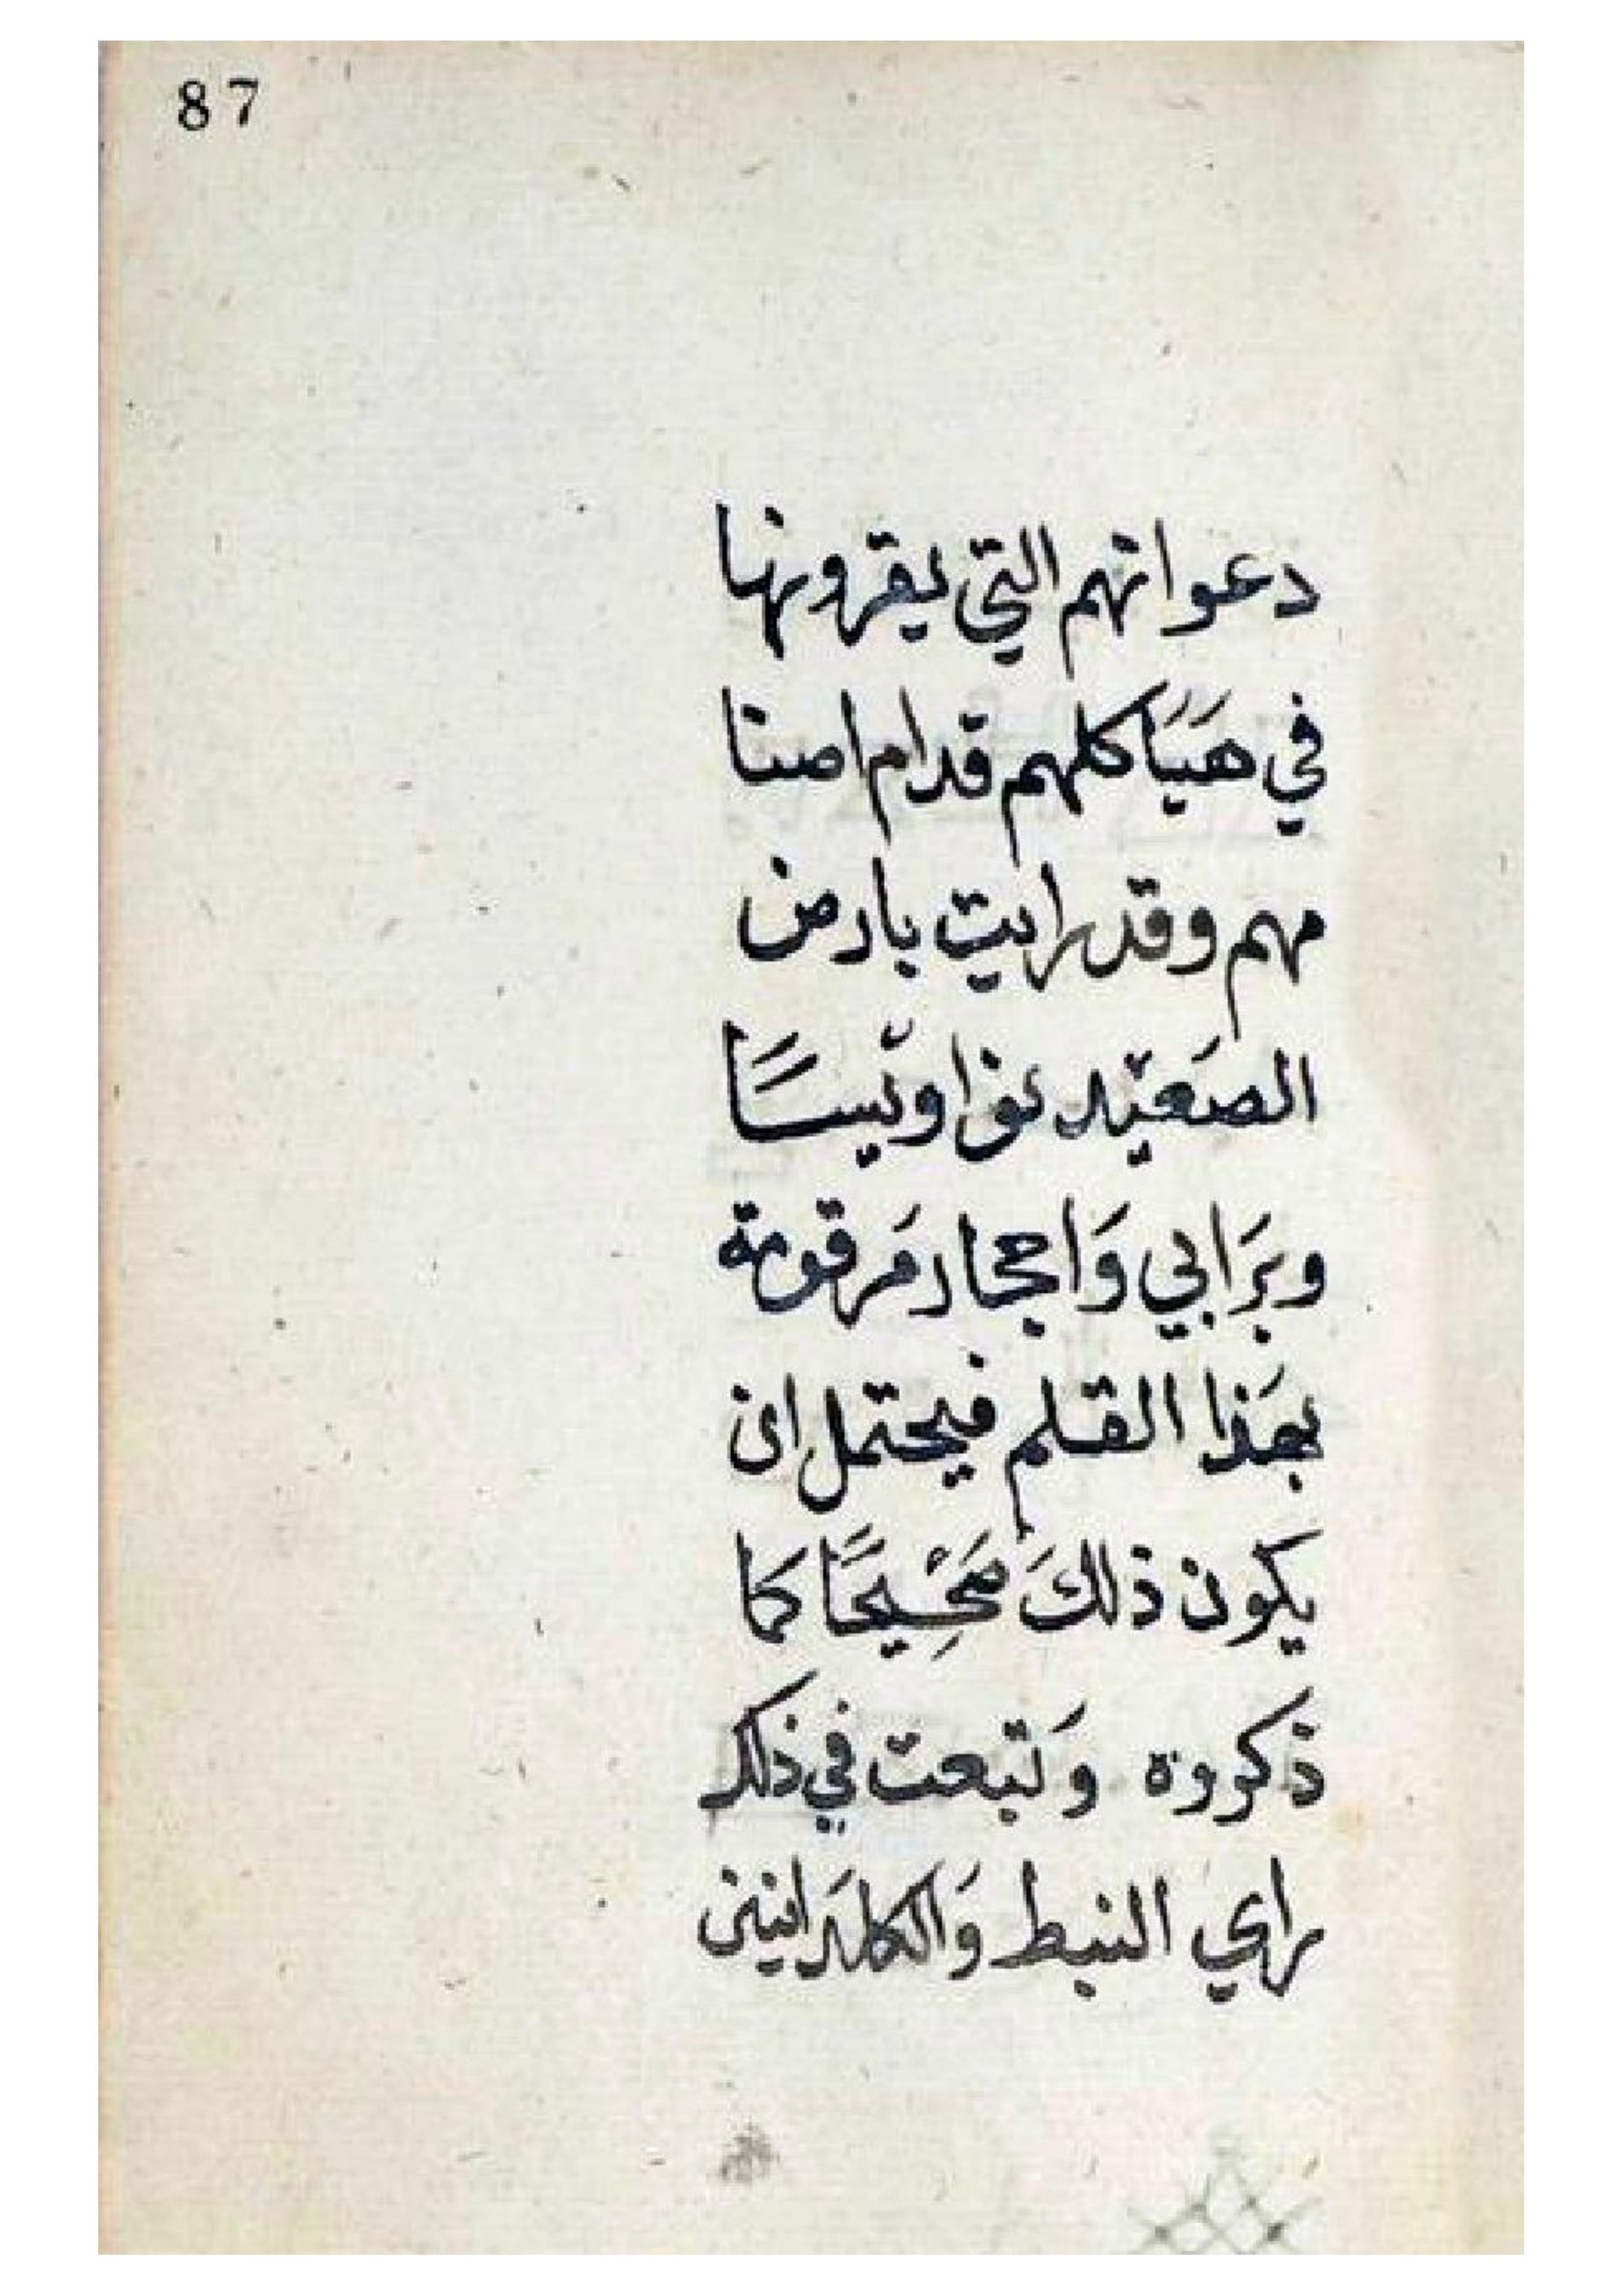 87
دعواتهم التي يقرونها
في هَيَاكلهم قدام اصنا
مهم وقد رايت بارض
الصَعيْد نواويْسًا
وبَرَابي وَاحجار مَرقومة
بهَذا القلم فيحتمل ان
يكون ذلكَ صَحْيحًا كما
ذكروه وَتبعت في ذلك
راي النبط وَالكلدَانيين